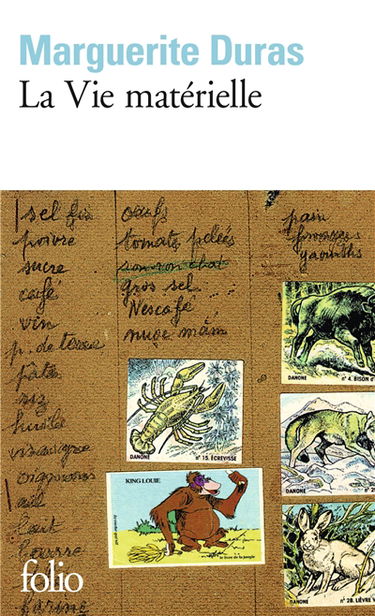 Marguerite Duras
La Vie matérielle
sel fin
poivre
sucre
café
vin
p. de terre
pâtes
riz
huile
vinaigre
oignons
ail
lait
beurre
farine
œufs
tomates pelées
gros sel
Nescafé
nuoc mâm
pain
fromages
yaourths
DANONE
n° 4. BISON d'
DANONE
n° 15. ÉCREVISSE
DANONE
n° 6.
KING LOUIE
le livre de la jungle
DANONE
n° 28. LIÈVRE V
folio